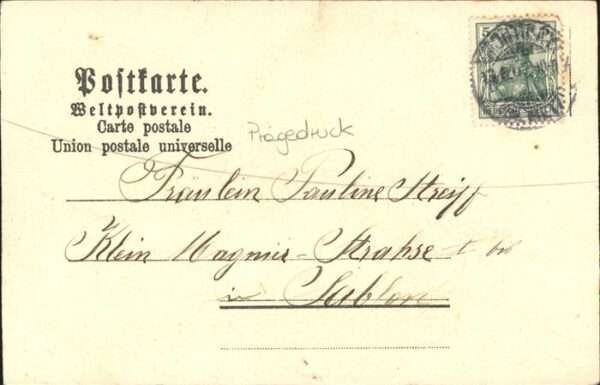 Postkarte.
Weltpostverein.
Carte postale
Union postale universelle
Prägedruck
5
Fräulein Pauline Streiff
Klein Magnier-Strahse
in Sablon